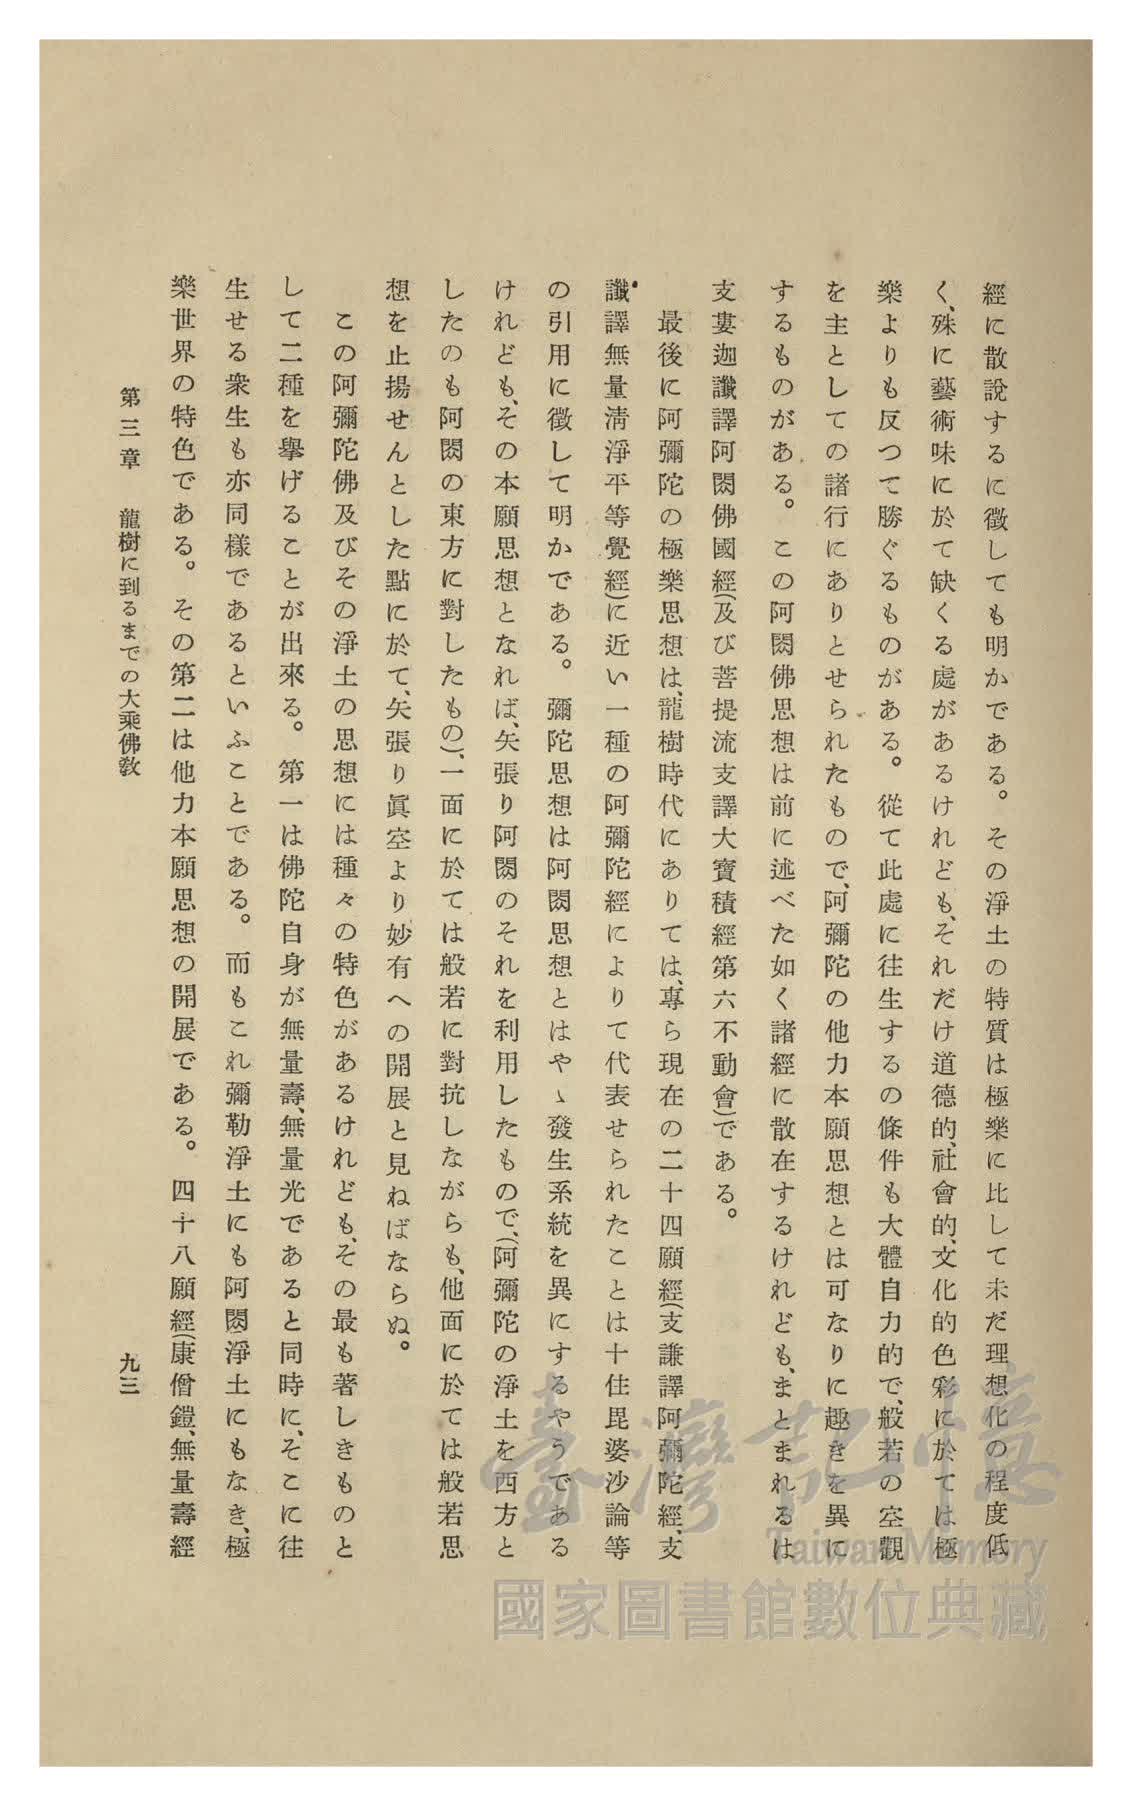 經に散說するに徵しても明かである。その淨土の特質は極樂に比して未だ理想化の程度低
く、殊に藝術味に於て缺くる處があるけれども、それだけ道德的、社會的、文化的色彩に於ては極
樂よりも反つて勝ぐるものがある。從て此處に往生するの條件も大體自力的で、般若の空觀
を主としての諸行にありとせられたもので、阿彌陀の他力本願思想とは可なりに趣きを異に
するものがある。この阿閦佛思想は前に述べた如く諸經に散在するけれども、まとまれるは
支婁迦讖譯阿閦佛國經(及び菩提流支譯大寶積經第六不動會)である。
最後に阿彌陀の極樂思想は、龍樹時代にありては、專ら現在の二十四願經(支謙譯阿彌陀經、支
讖譯無量淸淨平等覺經)に近い一種の阿彌陀經によりて代表せられたことは十住毘婆沙論等
の引用に徵して明かである。彌陀思想は阿閦思想とはやゝ發生系統を異にするやうである
けれども、その本願思想となれば、矢張り阿閦のそれを利用したもので、(阿彌陀の淨土を西方と
したのも阿閦の東方に對したもの)、一面に於ては般若に對抗しながらも、他面に於ては般若思
想を止揚せんとした點に於て、矢張り眞空より妙有への開展と見ねばならぬ。
この阿彌陀佛及びその淨土の思想には種々の特色があるけれども、その最も著しきものと
して二種を擧げることが出來る。第一は佛陀自身が無量壽、無量光であると同時に、そこに往
生せる衆生も亦同樣であるといふことである。而もこれ彌勒淨土にも阿閦淨土にもなき、極
樂世界の特色である。その第二は他力本願思想の開展である。四十八願經(康僧鎧、無量壽經
第三章 龍樹に到るまでの大乘佛敎
九三
臺灣記憶
Taiwan Memory
國家圖書館數位典藏